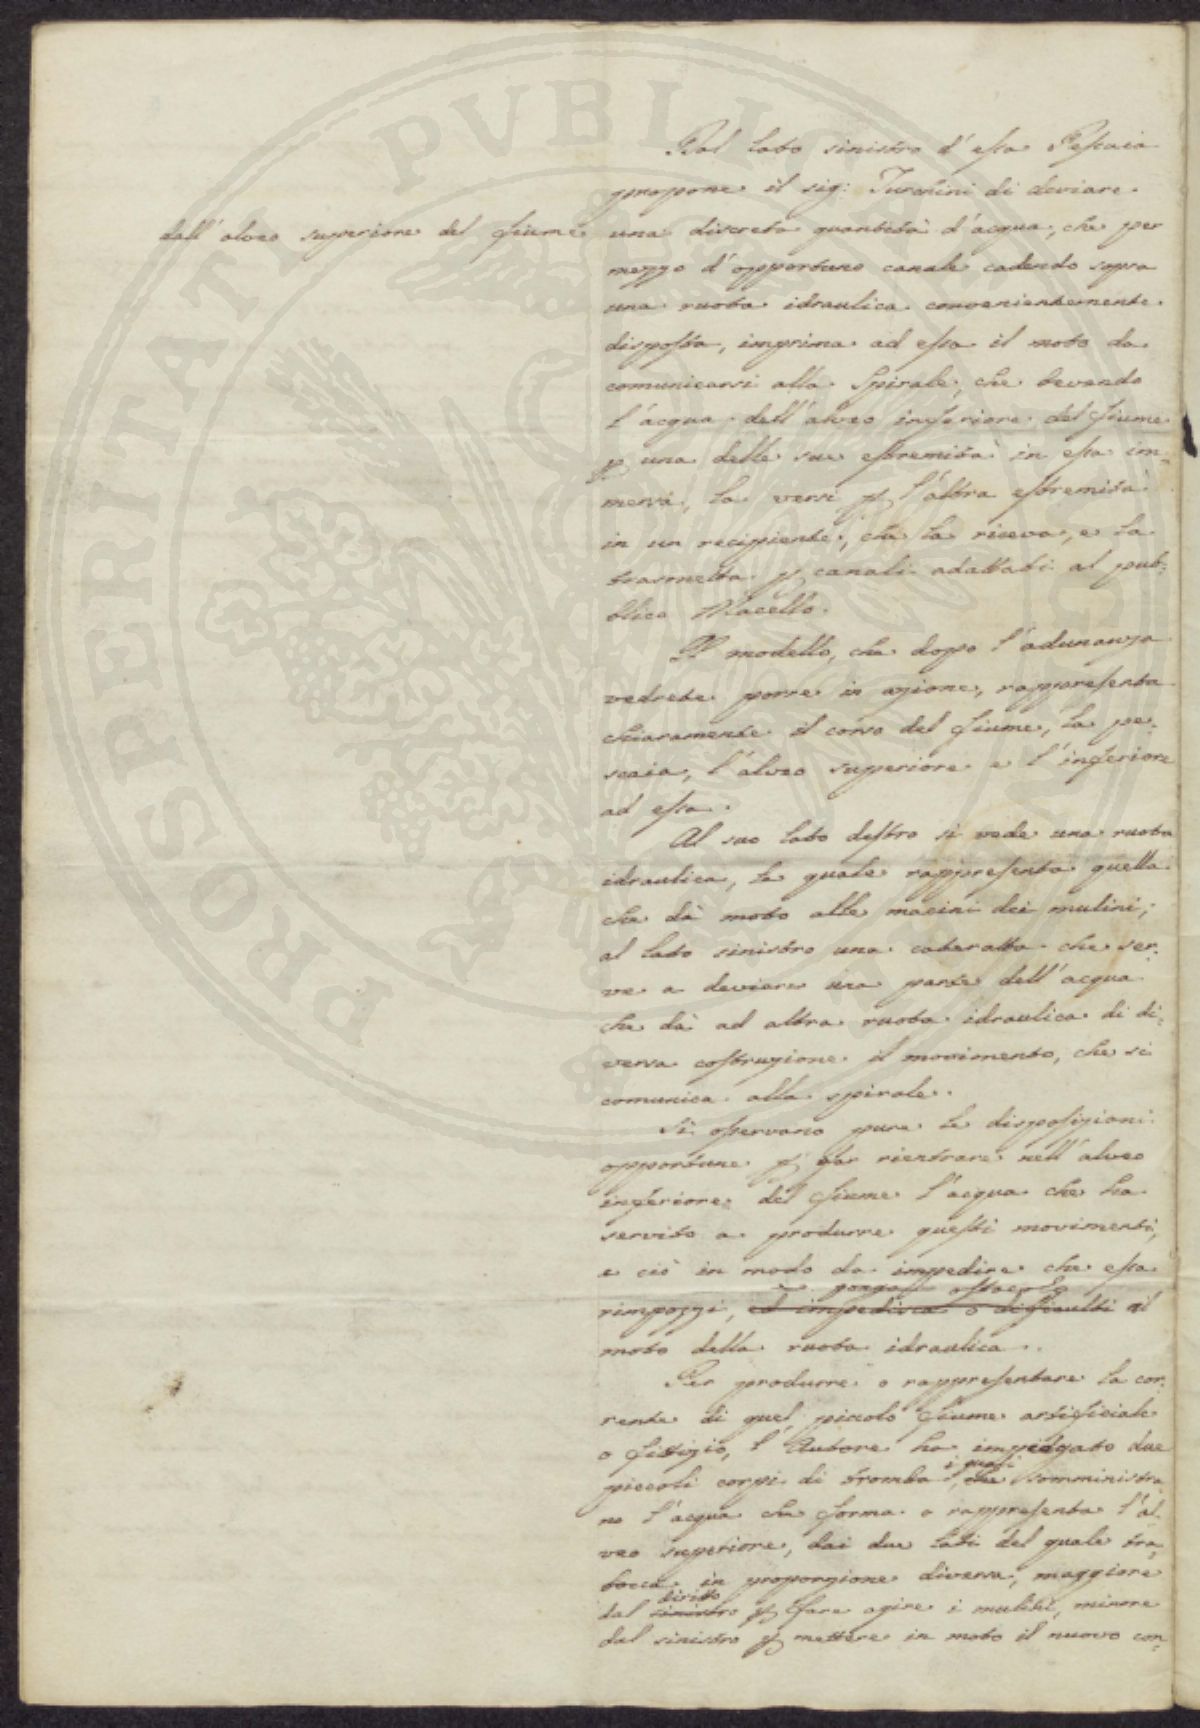 Dal lato sinistro d'essa Pescaia
propone il sig: Turchini di deviare
dall'alveo superiore del fiume
una discreta quantità d'acqua, che per
mezzo d'opportuno canale cadendo sopra
una ruota idraulica convenientemente
disposta, imprima ad essa il moto da
comunicarsi alla Spirale, che bevendo
l'acqua dell'alveo inferiore del fiume
p una delle sue estremità in essa im-
mersa, la versi p l'altra estremità
in un recipiente, che la riceva, e la
trasmetta p canali adattati al pub-
blico Macello.
Il modello, che dopo l'adunanza
vedrete porre in azione, rappresenta
chiaramente il corso del fiume, la pe-
scaia, l'alveo superiore e l'inferiore
ad essa.
Al suo lato destro si vede una ruota
idraulica, la quale rappresenta quella
che dà moto alle macini dei mulini;
al lato sinistro una cateratta che ser-
ve a deviare una parte dell'acqua
che dà ad altra ruota idraulica di di-
versa costruzione il movimento, che si
comunica alla spirale.
Si osservano pure le disposizioni
opportune p far rientrare nell'alveo
inferiore del fiume l'acqua che ha
servito a produrre questi movimenti,
e ciò in modo da impedire che essa
ponga ostacolo
rimpozzi, ed impedisca o difficulti il
moto della ruota idraulica.
Per produrre o rappresentare la cor-
rente di quel piccolo fiume artificiale
o fittizio, l'Autore ha impiegato due
i quali
piccoli corpi di tromba, che somministra
no l'acqua che forma o rappresenta l'al-
veo superiore, dai due lati del quale tra-
bocca in proporzione diversa, maggiore
diritto
dal sinistro p fare agire i mulini, minore
dal sinistro p mettere in moto il nuovo con-
PROSPERITATI PVBLICAE